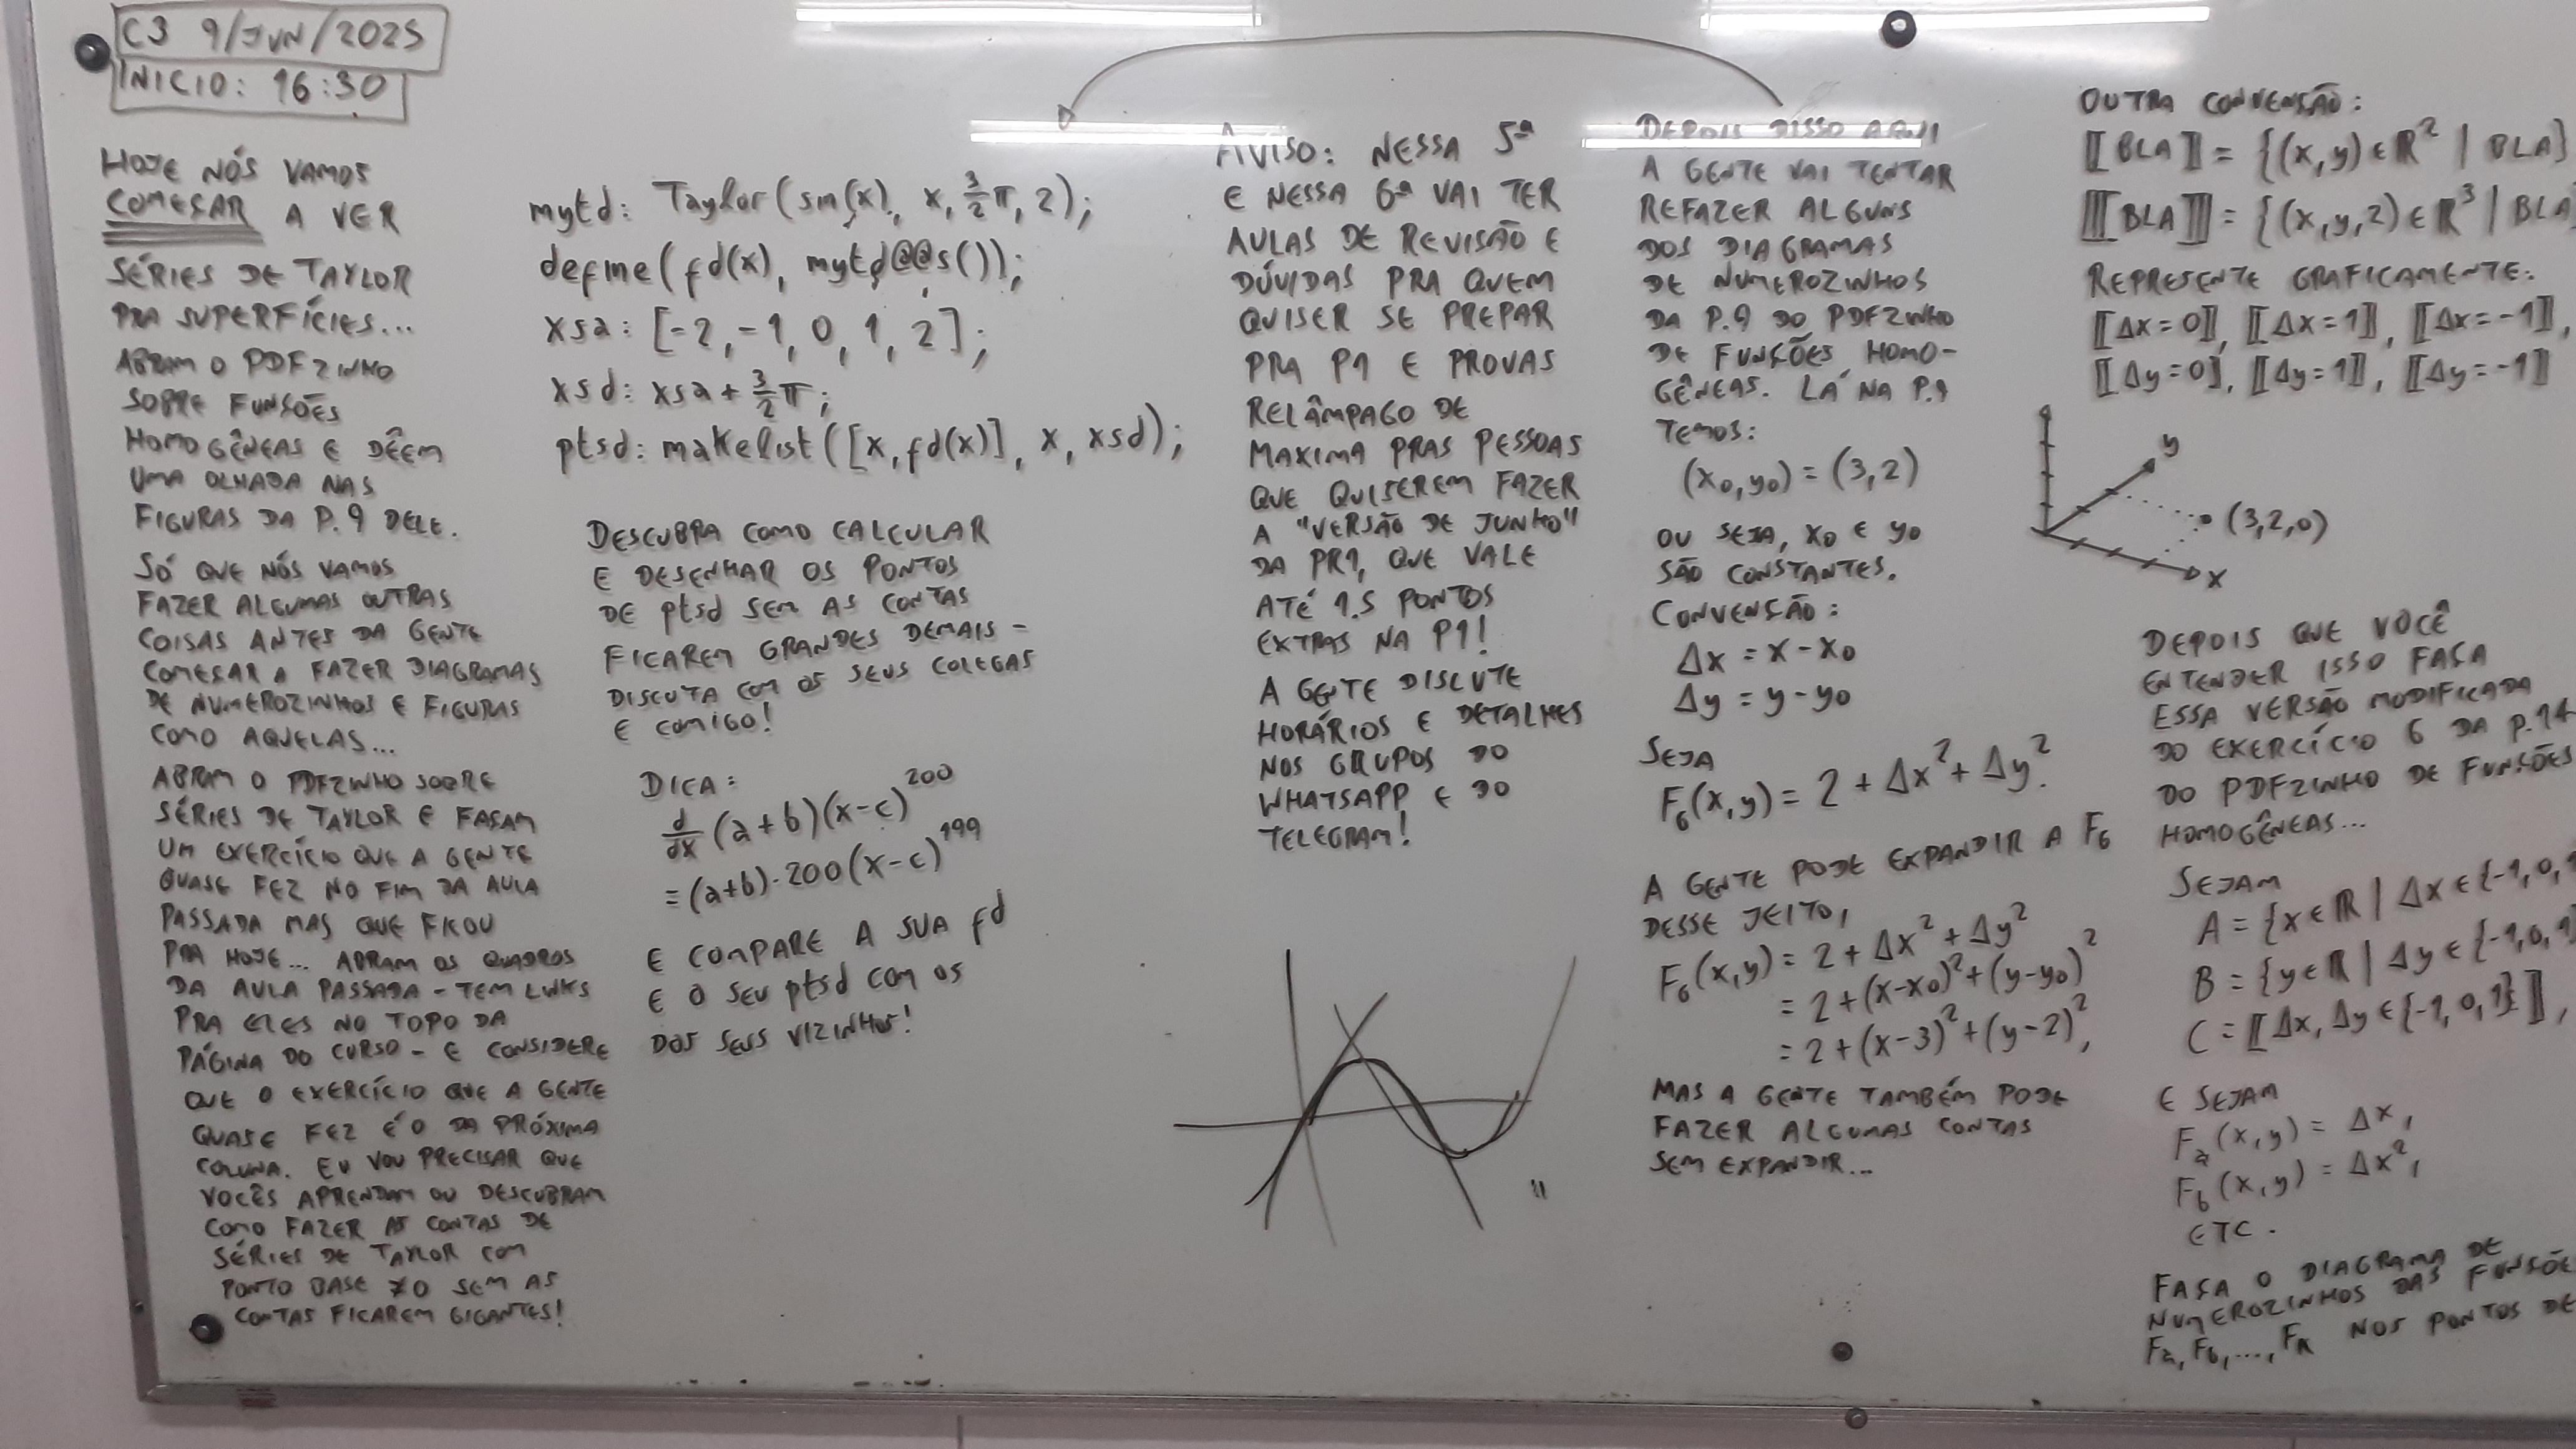 C3 9/JUN/2025
INICIO: 16:30
HOJE NÓS VAMOS
COMEÇAR A VER
SÉRIES DE TAYLOR
PRA SUPERFÍCIES...
ABRAM O PDFZINHO
SOBRE FUNÇÕES
HOMOGÊNEAS E DÊEM
UMA OLHADA NAS
FIGURAS DA P.9 DELE.
SÓ QUE NÓS VAMOS
FAZER ALGUMAS OUTRAS
COISAS ANTES DA GENTE
COMEÇAR A FAZER DIAGRAMAS
DE NUMEROZINHOS E FIGURAS
COMO AQUELAS...
ABRAM O PDFZINHO SOBRE
SÉRIES DE TAYLOR E FAÇAM
UM EXERCÍCIO QUE A GENTE
QUASE FEZ NO FIM DA AULA
PASSADA MAS QUE FICOU
PRA HOJE... ABRAM OS QUADROS
DA AULA PASSADA - TEM LINKS
PRA ELES NO TOPO DA
PÁGINA DO CURSO - E CONSIDERE
QUE O EXERCÍCIO QUE A GENTE
QUASE FEZ É O DA PRÓXIMA
COLUNA. EU VOU PRECISAR QUE
VOCÊS APRENDAM OU DESCUBRAM
COMO FAZER AS CONTAS DE
SÉRIES DE TAYLOR COM
PONTO BASE ≠0 SEM AS
CONTAS FICAREM GIGANTES!
mytd: Taylor(sin(x), x, 3/2 π, 2);
define(fd(x), mytd@@s());
xsa: [-2, -1, 0, 1, 2];
xsd: xsa + 3/2 π;
ptsd: makelist([x, fd(x)], x, xsd);
DESCUBRA COMO CALCULAR
E DESENHAR OS PONTOS
DE ptsd SEM AS CONTAS
FICAREM GRANDES DEMAIS -
DISCUTA COM OS SEUS COLEGAS
E COMIGO!
DICA:
d/dx (a+b)(x-c)^200
= (a+b)·200(x-c)^199
E COMPARE A SUA fd
E O SEU ptsd COM OS
DOS SEUS VIZINHOS!
AVISO: NESSA 5ª
E NESSA 6ª VAI TER
AULAS DE REVISÃO E
DÚVIDAS PRA QUEM
QUISER SE PREPAR
PRA P1 E PROVAS
RELÂMPAGO DE
MAXIMA PRAS PESSOAS
QUE QUISEREM FAZER
A "VERSÃO DE JUNHO"
DA PR1, QUE VALE
ATÉ 1.5 PONTOS
EXTRAS NA P1!
A GENTE DISCUTE
HORÁRIOS E DETALHES
NOS GRUPOS DO
WHATSAPP E DO
TELEGRAM!
DEPOIS DISSO AQUI
A GENTE VAI TENTAR
REFAZER ALGUNS
DOS DIAGRAMAS
DE NUMEROZINHOS
DA P.9 DO PDFZINHO
DE FUNÇÕES HOMO-
GÊNEAS. LÁ NA P.9
TEMOS:
(x₀,y₀) = (3,2)
OU SEJA, x₀ E y₀
SÃO CONSTANTES.
CONVENÇÃO:
Δx = x - x₀
Δy = y - y₀
SEJA
F₆(x,y) = 2 + Δx² + Δy².
A GENTE PODE EXPANDIR A F₆
DESSE JEITO,
F₆(x,y) = 2 + Δx² + Δy²
= 2 + (x-x₀)² + (y-y₀)²
= 2 + (x-3)² + (y-2)²,
MAS A GENTE TAMBÉM PODE
FAZER ALGUMAS CONTAS
SEM EXPANDIR...
OUTRA CONVENÇÃO:
⟦BLA⟧ = {(x,y)∈ℝ² | BLA}
⟦⟦BLA⟧⟧ = {(x,y,z)∈ℝ³ | BLA
REPRESENTE GRAFICAMENTE:
⟦Δx=0⟧, ⟦Δx=1⟧, ⟦Δx=-1⟧,
⟦Δy=0⟧, ⟦Δy=1⟧, ⟦Δy=-1⟧
y
(3,2,0)
x
DEPOIS QUE VOCÊ
ENTENDER ISSO FAÇA
ESSA VERSÃO MODIFICADA
DO EXERCÍCIO 6 DA P.14
DO PDFZINHO DE FUNÇÕES
HOMOGÊNEAS...
SEJAM
A = {x∈ℝ | Δx∈{-1,0,1
B = {y∈ℝ | Δy∈{-1,0,1
C = ⟦Δx, Δy∈{-1,0,1}⟧,
E SEJAM
Fₐ(x,y) = Δx,
F_b(x,y) = Δx²,
ETC.
FAÇA O DIAGRAMA DE
NUMEROZINHOS DAS FUNÇÕE
Fₐ, F_b, ..., F_k NOS PONTOS DE